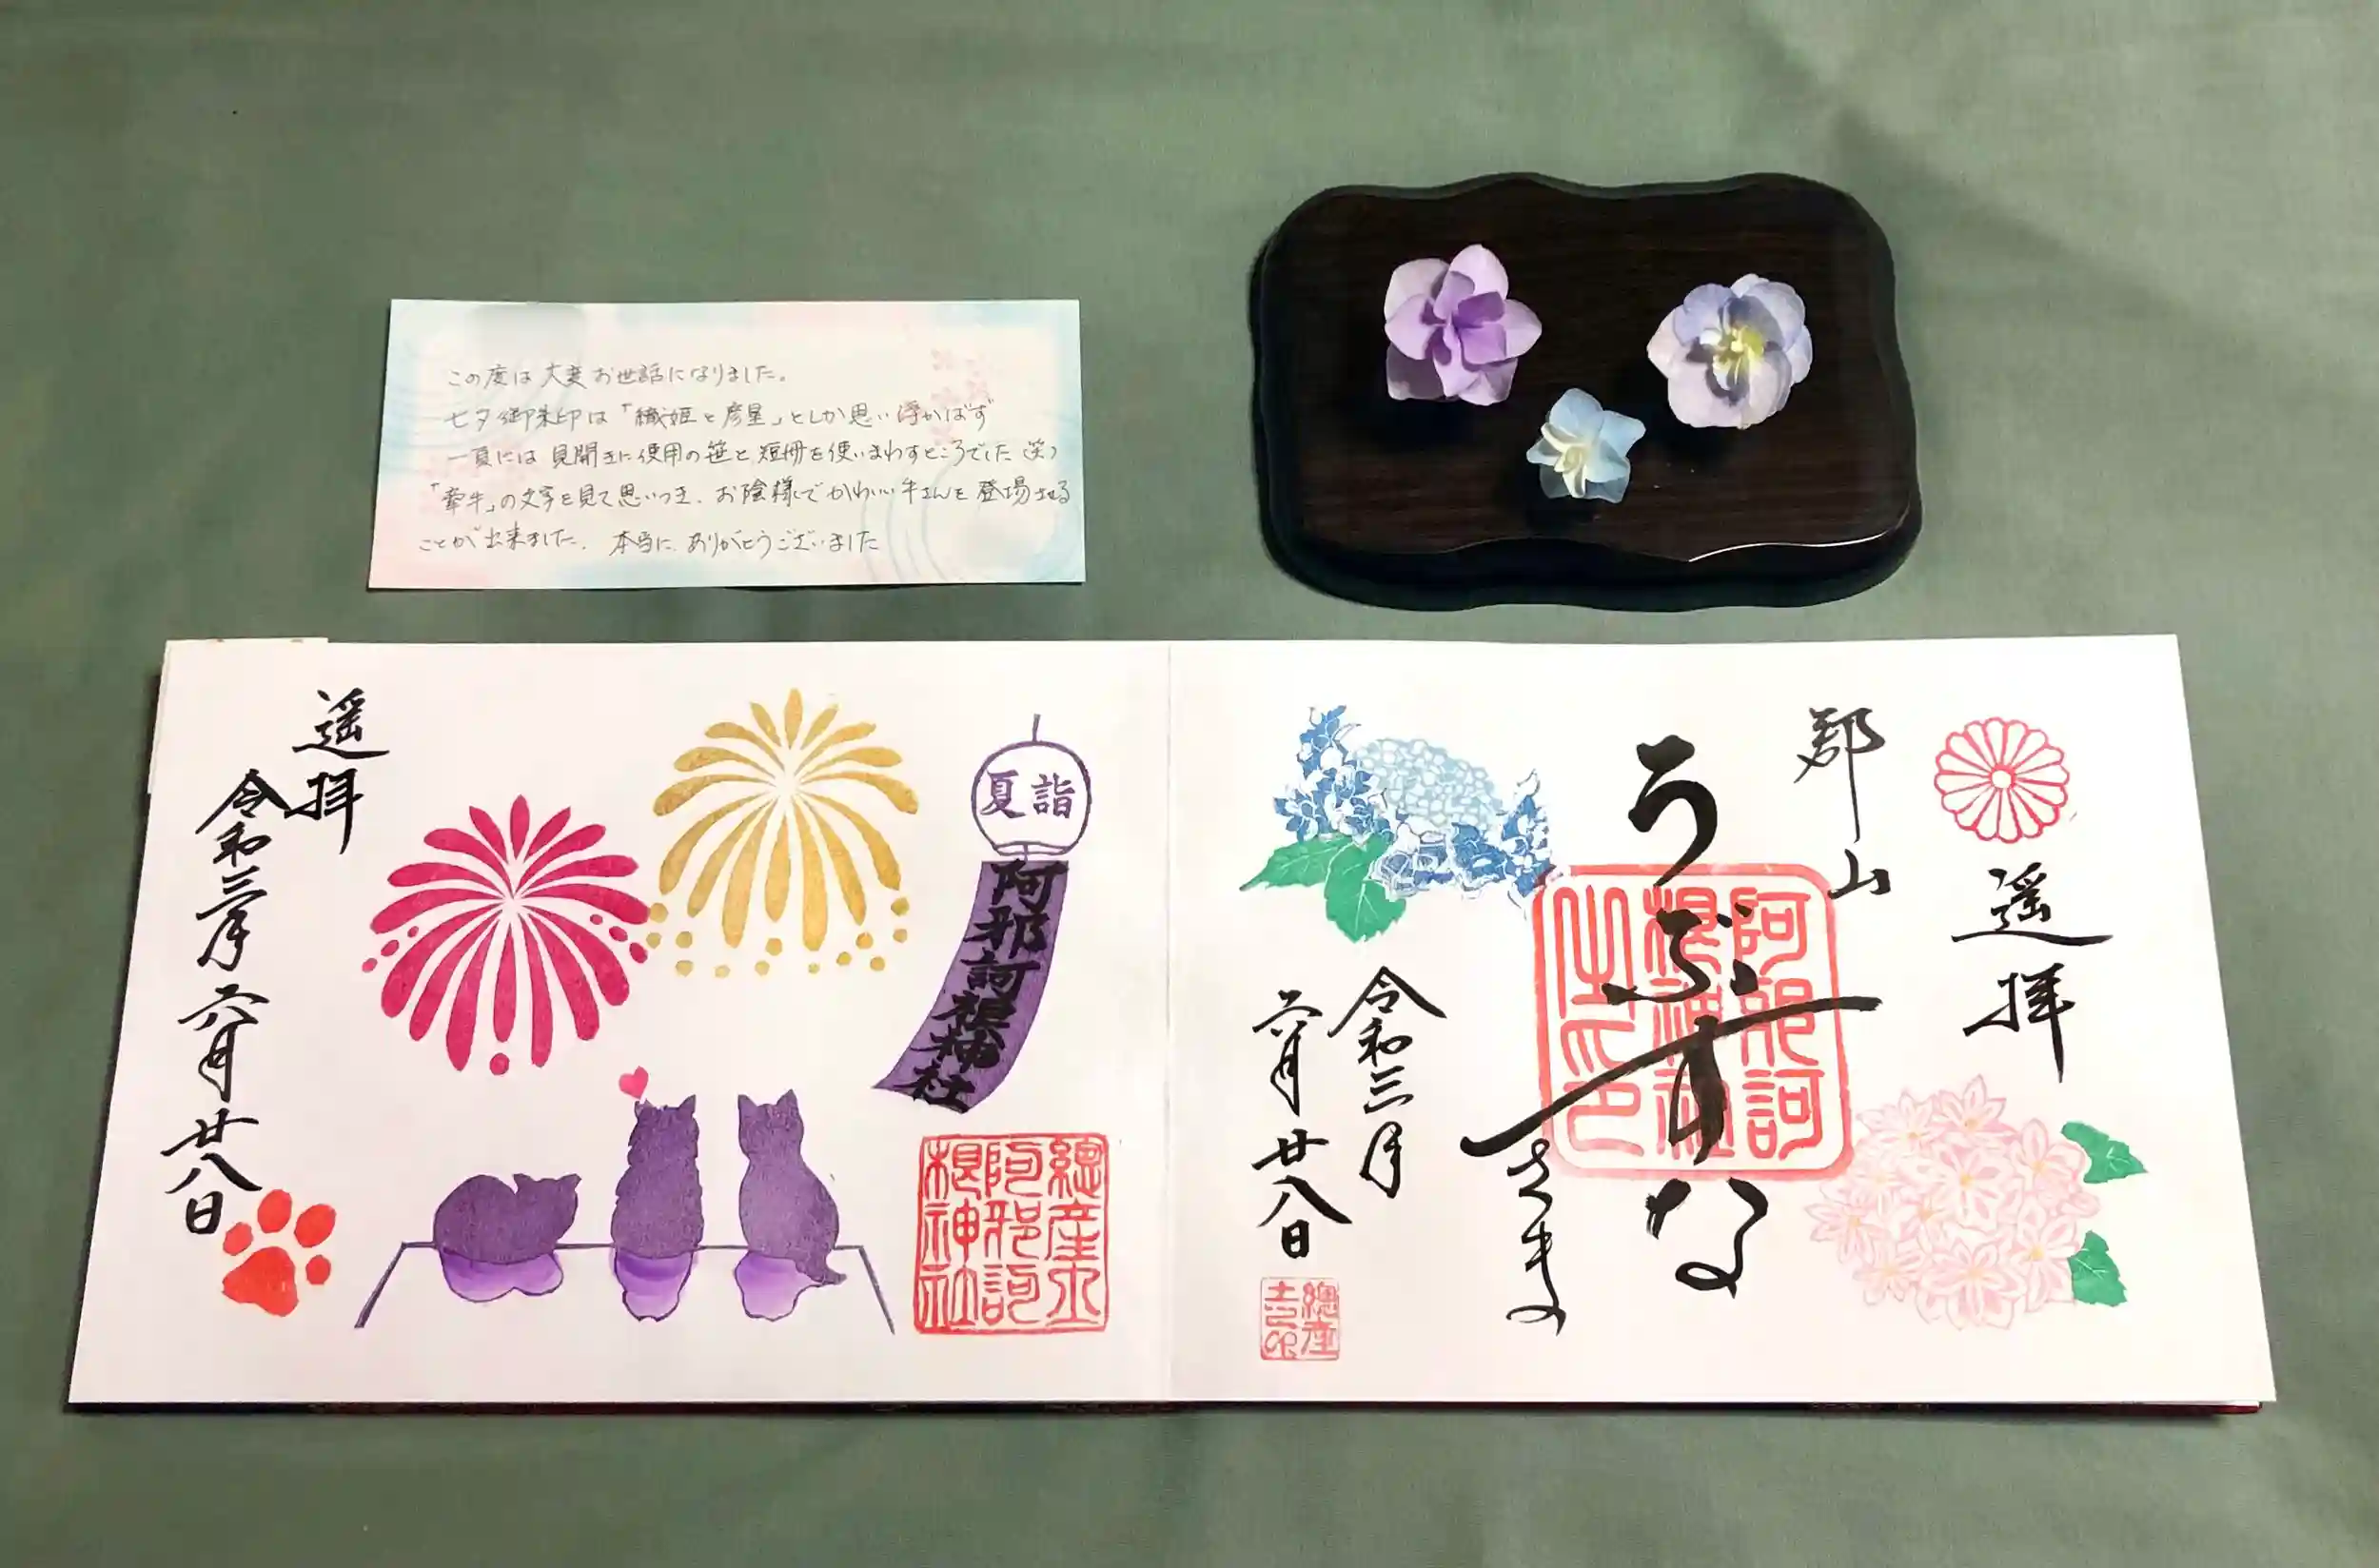 この度は大変お世話になりました。
七夕御朱印は「織姫と彦星」としか思い浮かばず
一頁には見開きに使用の笹と短冊を使いまわすところでした(笑)
「牽牛」の文字を見て思いつき、お陰様でかわいい牛さんを登場させる
ことが出来ました。本当に、ありがとうございました
遥拝
郡山
うぶすな
さま
阿邪訶
根神社
之印
令和三年
六月廿八日
總産土印
夏詣
阿邪訶根神社
總産土
阿邪訶
根神社
遥拝
令和三年六月廿八日